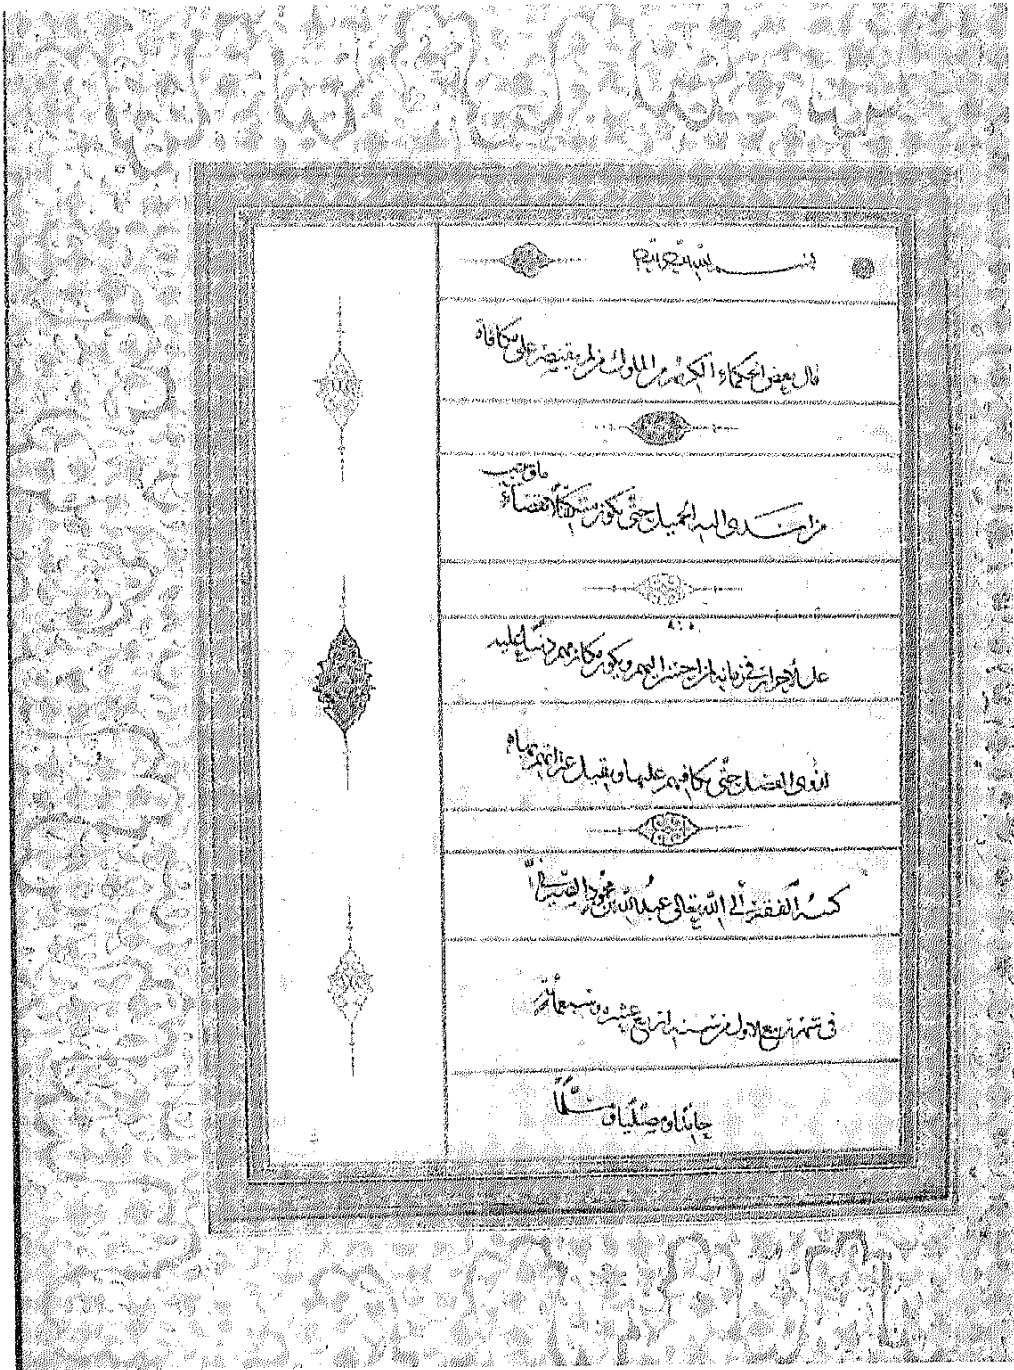 بسم الله الرحمن الرحيم
قال بعض الحكماء الكريم من الملوك من لم يقتصر على مكافاة
من اسدى اليه الجميل حتى يكون متكفلا بقضاء
ما وجب
على الاحرار في زمانه لمن احسن اليهم ويكون مكانهم دينا عليه
لذوي الفضل حتى يكافيهم عليها
كتبه الفقير الى الله تعالى عبد الله بن محمود الصيرفي
في ربيع الاول من سنة اربع عشره وسبعمائة
حامدا ومصليا ومسلما